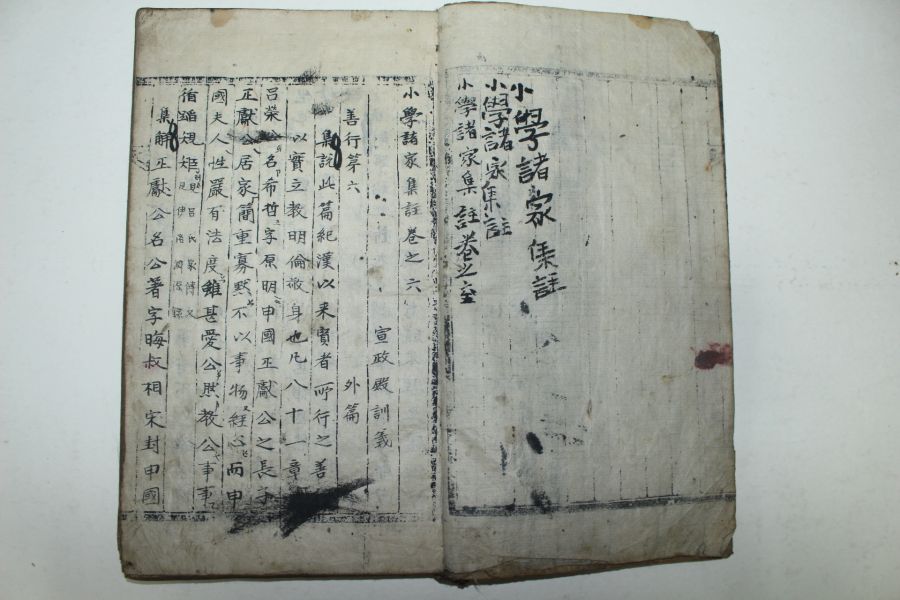 小學諸家集註
小學諸家集註
小學諸家集註卷之
小學諸家集註卷之六
宣政殿訓義
善行第六 外篇
集說此篇紀漢以来賢者所行之善
以實立教明倫敬身也凡八十一章
呂榮公名希哲字原明申國正獻公之長子
正獻公居家簡重寡黙不以事物經心而申
國夫人性嚴有法度雖甚愛公然教公事事
循蹈規矩 呂氏家傳又見伊洛淵源
集解正獻公名公著字晦叔相宋封申國